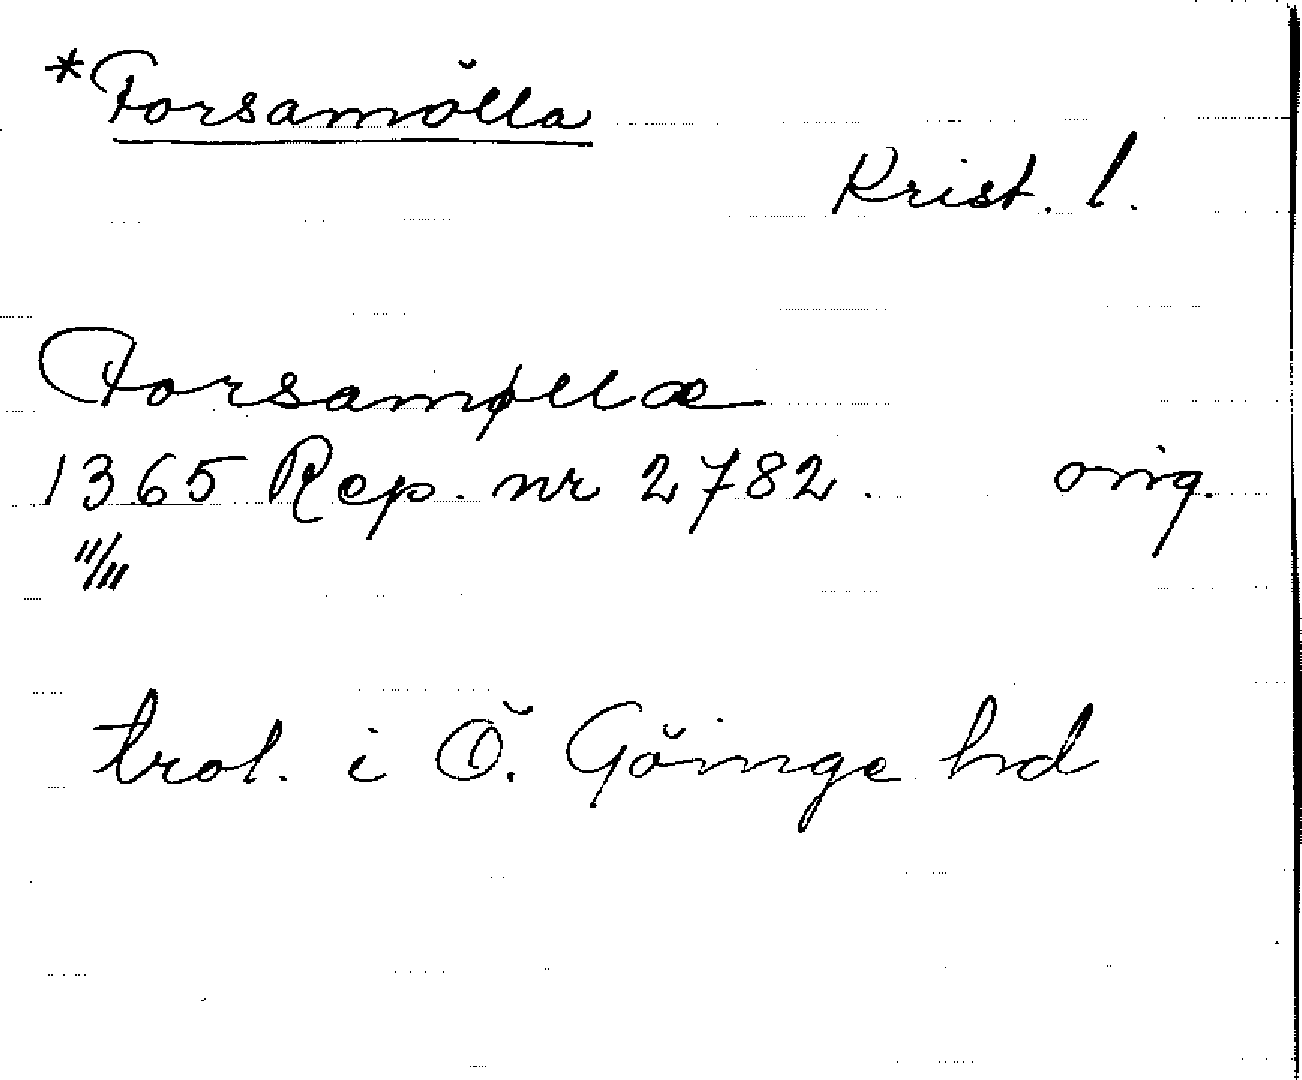 *Forsamölla
Krist. l.
Forsamøllæ
1365 Rep. nr 2782. orig.
11/11
trol. i Ö. Göinge hd